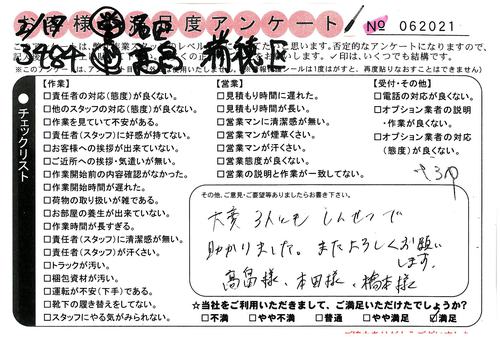 お客様満足度アンケート
No 062021
【作業】
□責任者の対応(態度)が良くない。
□他のスタッフの対応(態度)が良くない。
□作業を見ていて不安がある。
□責任者(スタッフ)に好感が持てない。
□お客様への挨拶が出来ていない。
□ご近所への挨拶・気遣いが無い。
□作業開始前の内容確認がなかった。
□作業開始時間が遅れた。
□荷物の取り扱いが雑である。
□お部屋の養生が出来ていない。
□作業時間が長すぎる。
□責任者(スタッフ)に清潔感が無い。
□責任者(スタッフ)が汗くさい。
□トラックが汚い。
□梱包資材が汚い。
□運転が不安(下手)である。
□靴下の履き替えをしてない。
□スタッフにやる気がみられない。
【営業】
□見積もり時間に遅れた。
□見積もり時間が長い。
□営業マンに清潔感が無い。
□営業マンが煙草くさい。
□営業マンが汗くさい。
□営業態度が良くない。
□営業の説明と作業が一致してない。
【受付・その他】
□電話の対応が良くない。
□オプション業者の説明
・作業が良くない。
□オプション業者の対応
(態度)が良くない。
チェックリスト
その他、ご意見・ご要望等ありましたらお書き下さい。
大変 3人とも しんせつで
助かりました。またよろしくお願い
します。
高畠様、本田様、橋本様
☆当社をご利用いただきまして、ご満足いただけたでしょうか?
□不満 □やや不満 □普通 □やや満足 ☑満足